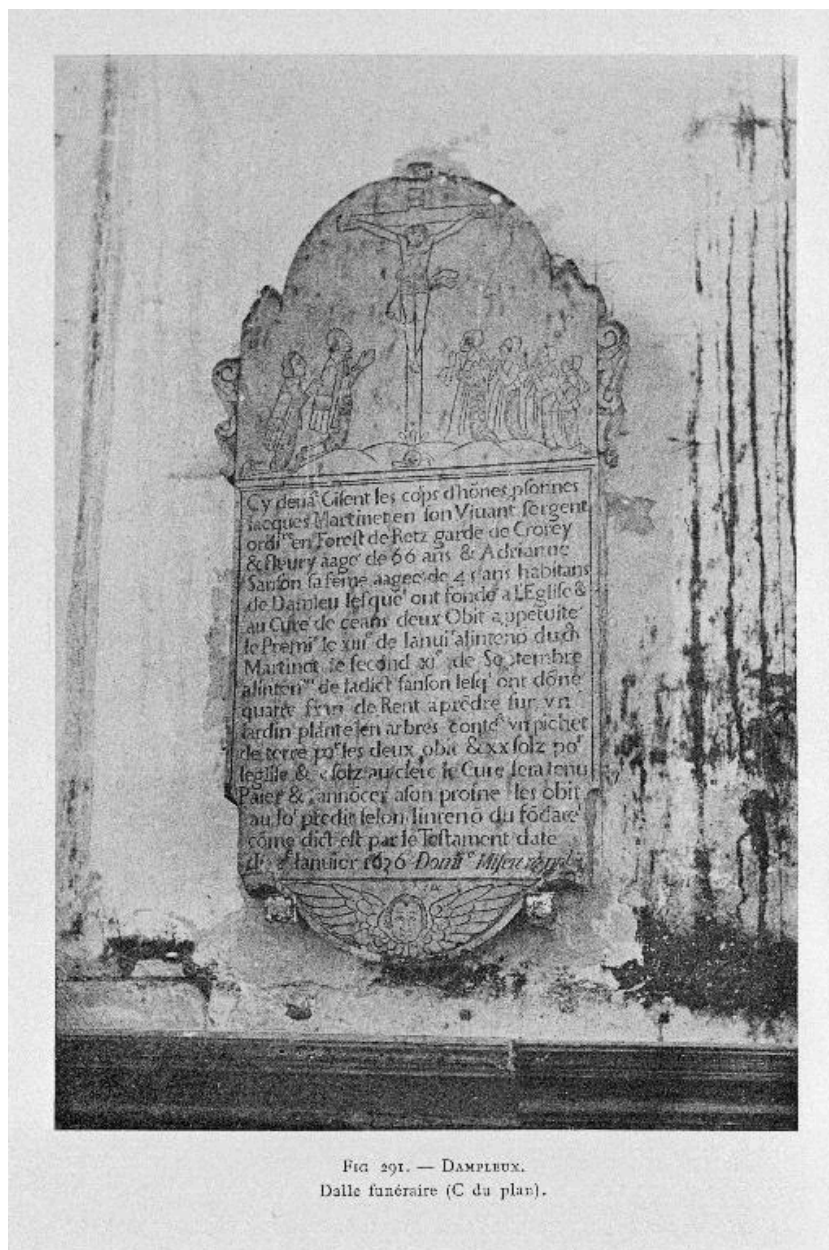 Cy deuāᵗ Gisent les cops d'hōnes psonnes
Iacques Martinet en son Viuant sergent
ordiʳᵉ en Forest de Retz garde de Crorey
& fleury aagé de 66 ans & Adrianne
Sanson sa fēme aagee de 4 ans habitans
de Damleu lesque' ont fondé a l'Eglise &
au Curé de ceans deux Obit appetuite'
le Premi' le xiiiᵉ de Ianui' alinteno du
Martinot le second xiᵉ de Septembre
alinten de ladict sanson lesq' ont dōné
quatre de Rent aprēdre sur vn
Iardin planté en arbres vn pichet
de terre poʳ les deux obit & xx solz poʳ
leglise & solz au clerc le Curé sera tenu
Paier & annōcer a son prosne les obit
au ioʳ predit selon linteno du fōdate'
cōme dict est par le Testament date
du Ianuier 1636
Fig 291. — Dampleux.
Dalle funéraire (C du plan).